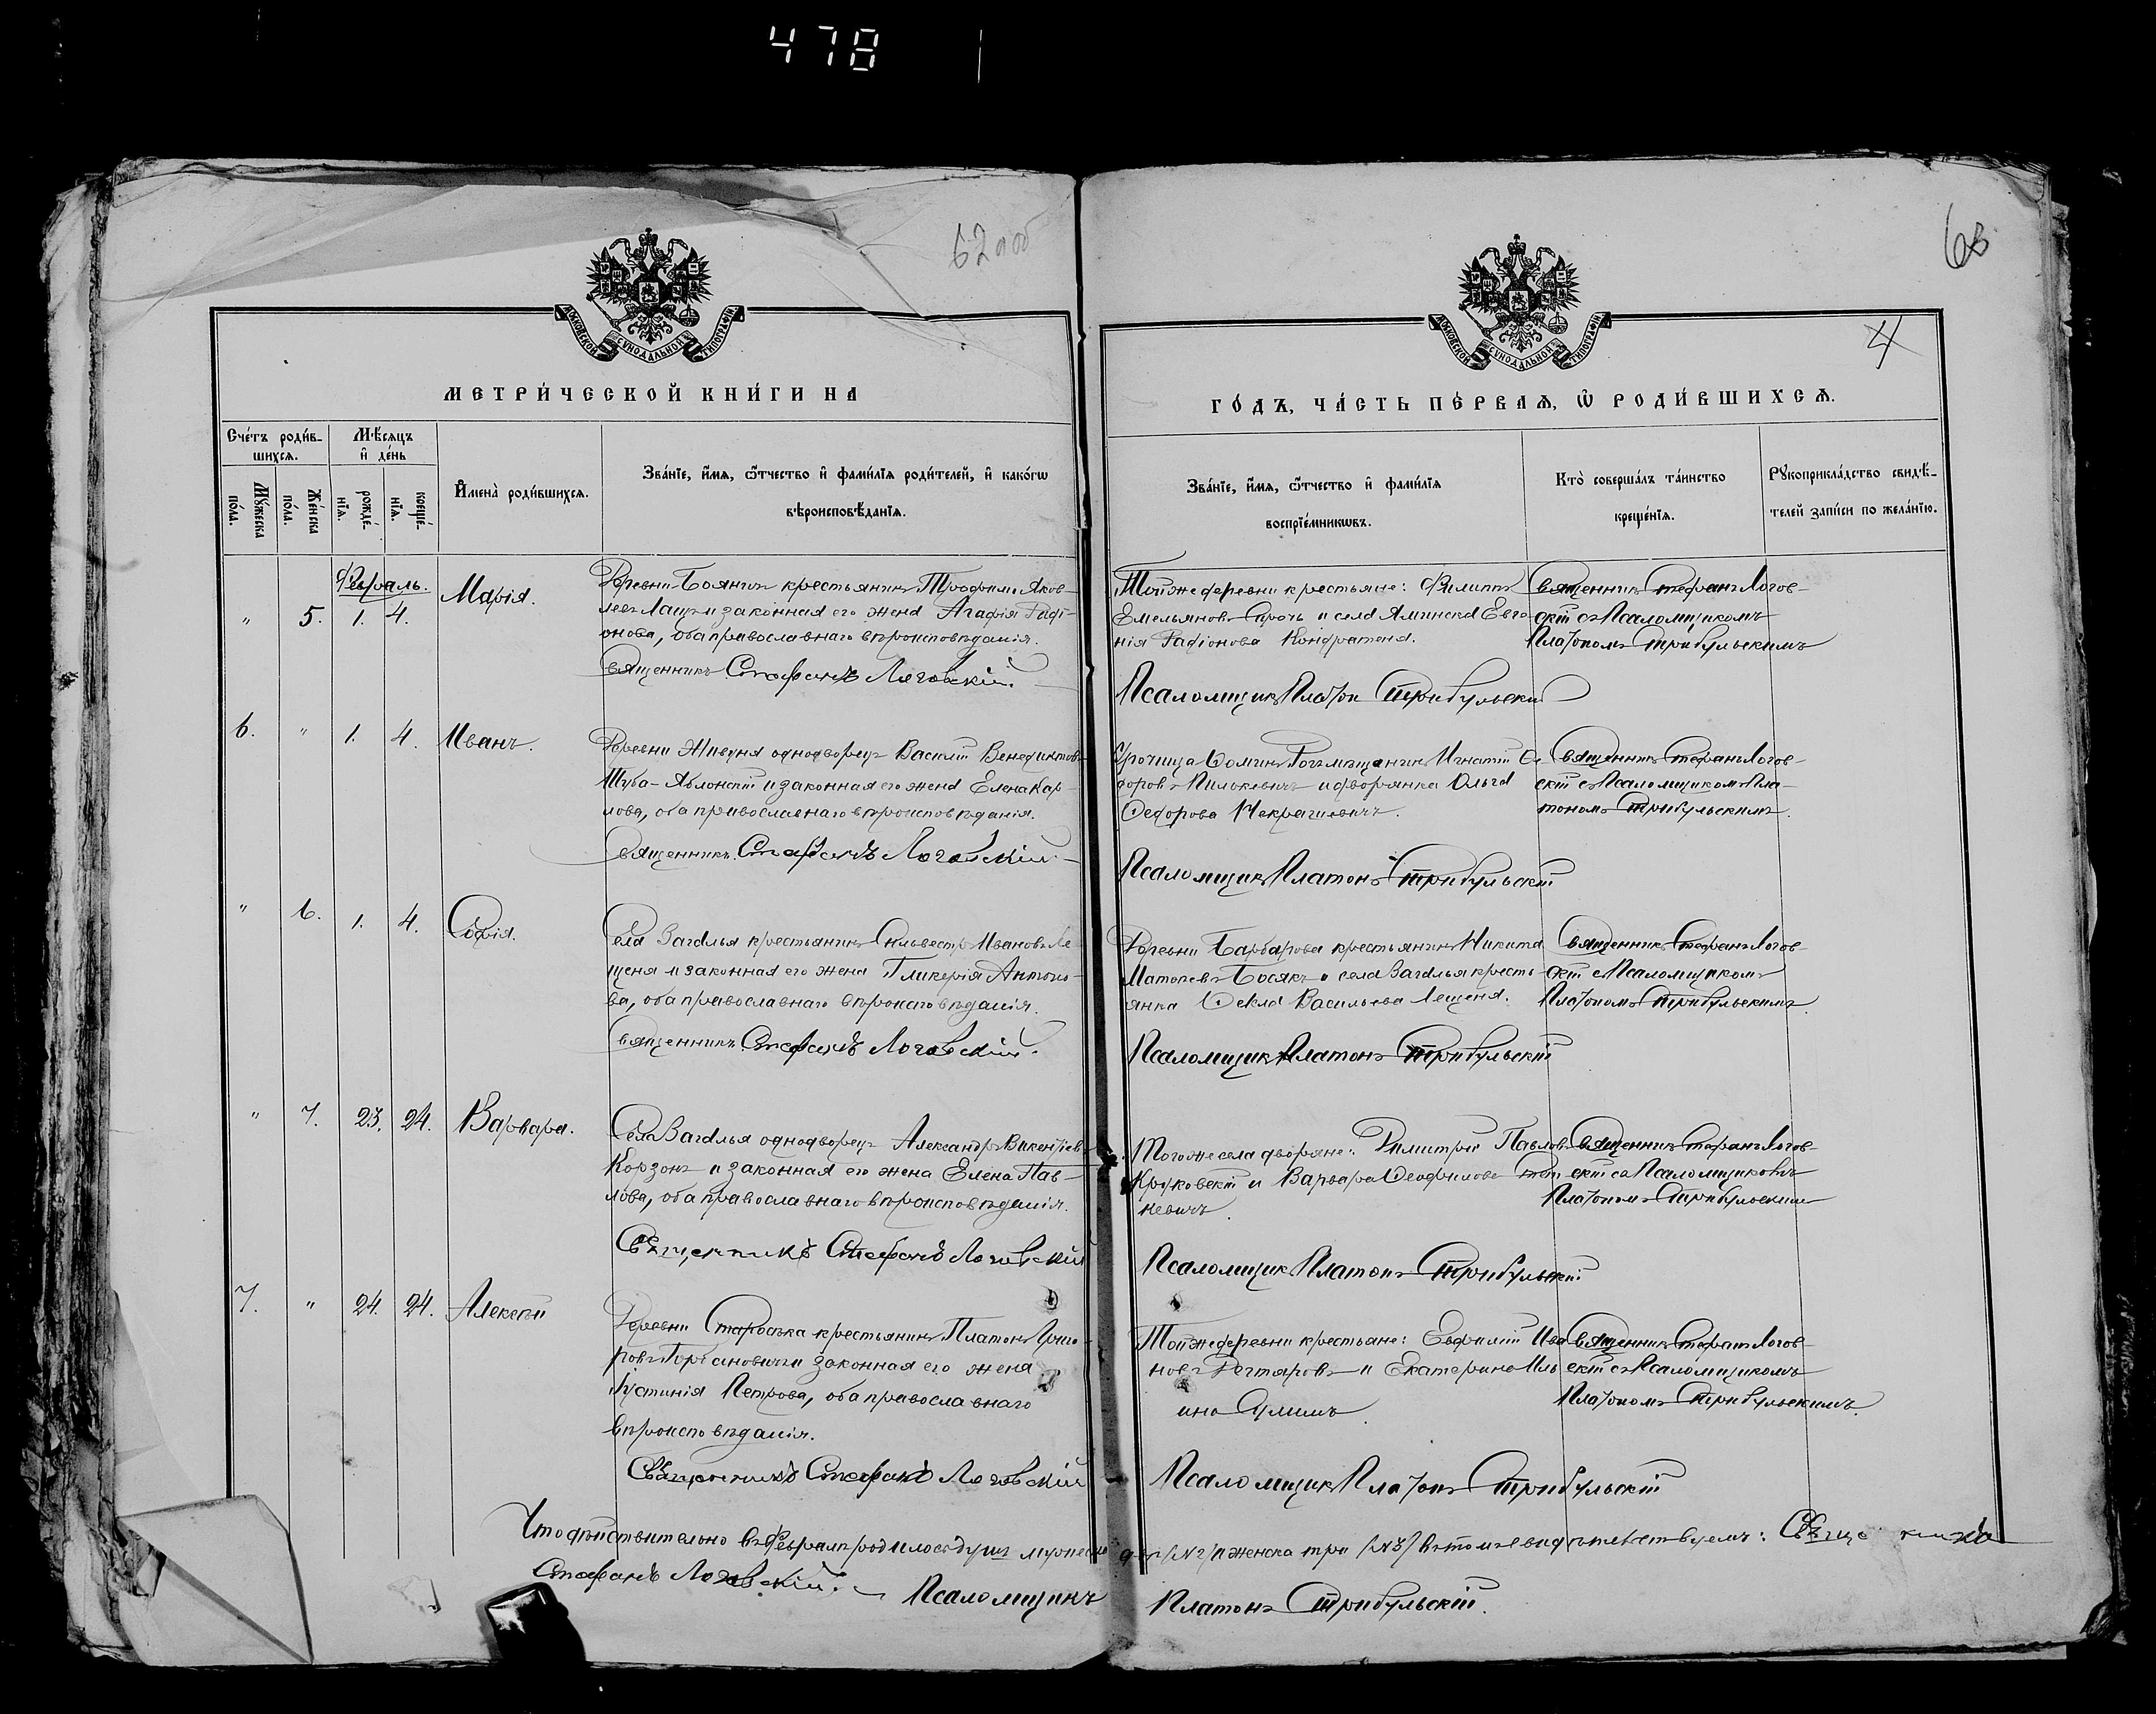 478
62 об
63
4
МОСКОВСКОЙ СѴНОДАЛЬНОЙ ТИПОГРАФІИ
МОСКОВСКОЙ СѴНОДАЛЬНОЙ ТИПОГРАФІИ
МЕТРИ́ЧЕСКОЙ КНИ́ГИ НА
ГО́ДЪ, ЧА́СТЬ ПЕ́РВАѦ, Ѡ҆ РОДИ́ВШИХСѦ.
Сче́тъ роди́в-
шихсѧ.
Мꙋ́жеска по́ла.
Же́нска по́ла.
Мѣ́сѧцъ
и҆ де́нь
рожде́-
нїѧ.
креще́-
нїѧ.
И҆мена̀ роди́вшихсѧ.
Зва́нїе, и҆́мѧ, ѻ҆́тчество и҆ фами́лїѧ роди́телей, и҆ како́гѡ
вѣроисповѣ́данїѧ.
Зва́нїе, и҆́мѧ, ѻ҆́тчество и҆ фами́лїѧ
воспрїе́мникѡвъ.
Кто̀ соверша́лъ та́инство
креще́нїѧ.
Рꙋкоприкла́дство свидѣ́-
телей за́писи по жела́нїю.
Февраль.
" 5. 1. 4. Марія.
Деревни Боянич крестьянинъ Трофимъ Яков-
левъ Лащ и законная его жена Агафія Радi-
онова, оба православнаго вѣроисповѣданія.
Священникъ Стефанъ Логовскій.
Тойже деревни крестьяне: Филиппъ
Емельяновъ и села Евге-
нія Радіонова Кондратеня.
Псаломщикъ Платон Трибульскій
Священникъ Стефанъ Логов-
скій съ Псаломщикомъ
Платономъ Трибульскимъ
6. " 1. 4. Иванъ.
Деревни однодворецъ Василій Венедиктовъ
Шуба-Яблонскій и законная его жена Елена Кар-
лова, оба православнаго вѣроисповѣданія.
Священникъ Стефанъ Логовскій
Игнатій Ѳе-
доровъ и дворянка Ольга
Ѳедорова Некрашевичъ.
Псаломщикъ Платонъ Трибульскій
Священникъ Стефанъ Логов-
скій съ Псаломщикомъ Пла-
тономъ Трибульскимъ.
" 6. 1. 4. Софія.
Села Загалья крестьянинъ Сильвестръ Ивановъ Ле-
щеня и законная его жена Гликерія Антоно-
ва, оба православнаго вѣроисповѣданія.
Священникъ Стефанъ Логовскій.
Деревни Барбарова крестьянинъ Никита
Босякъ и села Загалья кресть-
янка Ѳекла Васильева Лещеня.
Псаломщикъ Платонъ Трибульскій
Священникъ Стефанъ Логов-
скій съ Псаломщикомъ
Платономъ Трибульскимъ.
" 7. 23. 24. Варвара.
Села Загалья однодворецъ Александръ Викентіев
Корзонъ и законная его жена Елена Пав-
лова, оба православнаго вѣроисповѣданія.
Священникъ Стефанъ Логовскій
Тогоже села дворяне: Димитрій Павловъ
Круковскій и Варвара Ѳеофилова
невичъ.
Псаломщикъ Платонъ Трибульскій
Священникъ Стефанъ Логов-
скій съ Псаломщикомъ
Платономъ Трибульскимъ
7. " 24. 24. Алексѣй
Деревни крестьянинъ Платонъ Григо-
ровъ и законная его жена
Іустинія Петрова, оба православнаго
вѣроисповѣданія.
Священникъ Стефанъ Логовскій
Тойже деревни крестьяне: Евфимій Ива-
новъ Дегтяровъ и Екатерина Иль-
ина
Псаломщикъ Платонъ Трибульскій
Священникъ Стефанъ Логов-
скій съ Псаломщикомъ
Платономъ Трибульскимъ.
Что дѣйствительно въ Февралѣ родилось душъ мужеска двѣ (№ 2) и женска три (№ 3) въ томъ свидѣтельствуемъ: Священникъ
Стефанъ Логовскій. Псаломщикъ Платонъ Трибульскій.